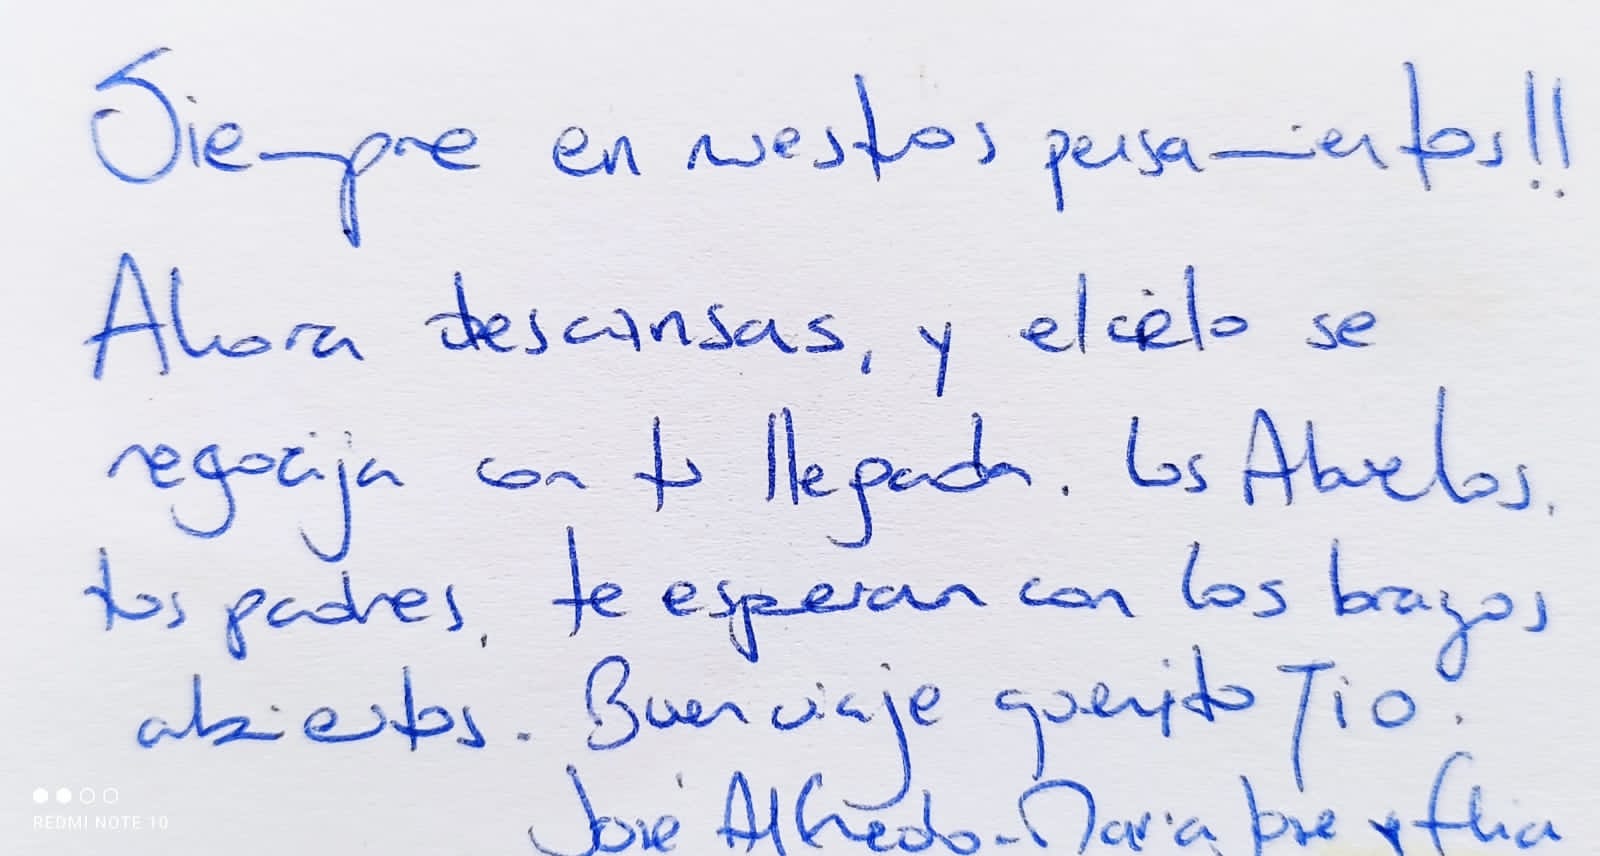 Siempre en nuestros pensamientos!!
Ahora descansas, y el cielo se
regocija con tu llegada. Los Abuelos,
tus padres, te esperan con los brazos
abiertos. Buen viaje querido Tio.
José Alfredo - Maria Jose y flia
REDMI NOTE 10